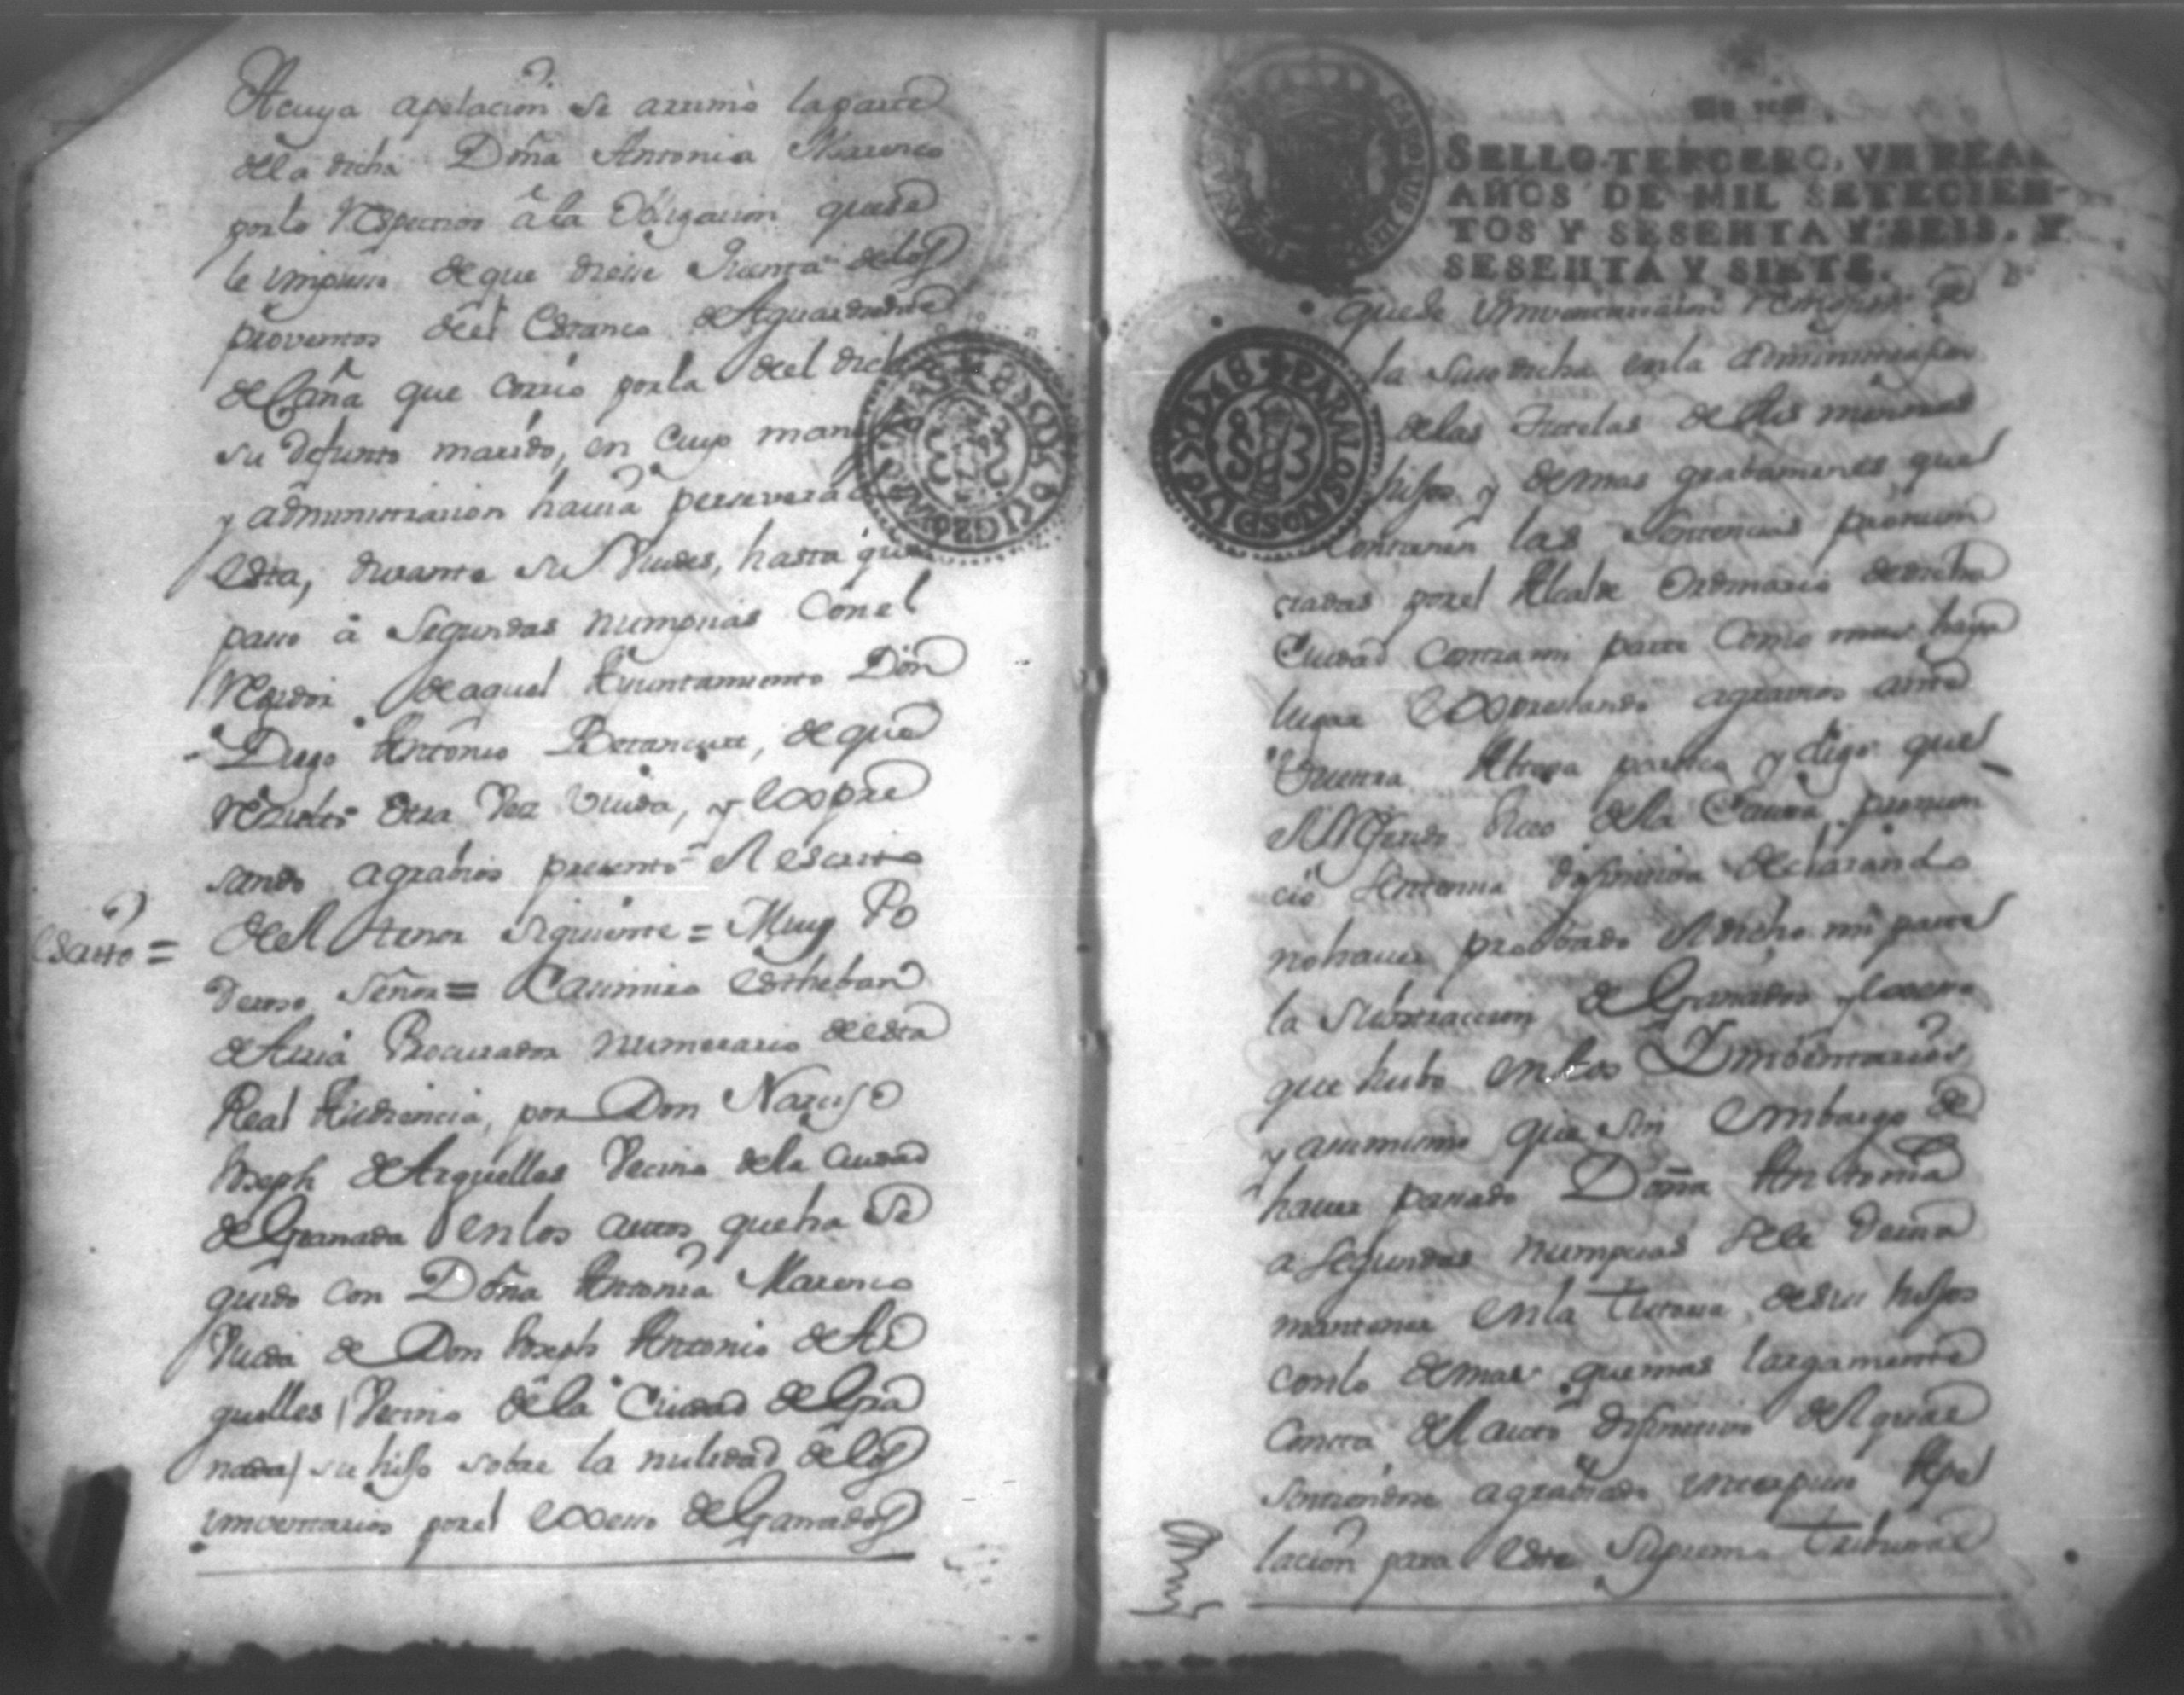 Acuya apelacion se arrimó la parte
de la dicha Doña Antonia Marenco
por lo respectivo â la obligacion que se
le impuso de que diesse quenta de los
proventos del estanco de Aguardiente
de Caña que corrio por la del dicho
su defunto marido, en cuyo manejo
y administracion havia perseverado
esta, durante su viudes, hasta que
passo â segundas numpcias con el
Regidor de aquel Ayuntamiento Don
Diego Antonio Betancurt, de que
resultó otra vez viuda, y expre
sando agrabios presentó el escrito
escrito = del tenor siguiente = Muy Po
deroso Señor = Casimiro Estheban
de Auria Procurador numerario de esta
Real Audiencia, por Don Narciso
Joseph de Arguelles Vecino de la ciudad
de Granada en los autos que ha se
guido con Doña Antonia Marenco
Viuda de Don Joseph Antonio de Ar
guelles (Vecino de la Ciudad de Gra
nada) su hijo sobre la nulidad de los
imventarios por el exceso de Ganados
SELLO TERCERO, VN REAL
AÑOS DE MIL SETECIEN-
TOS Y SESENTA Y SEIS, Y
SESENTA Y SIETE.
CAROLUS III
PARA LOS AÑOS DE 1767 Y 1768
que se imventariaron
la susodicha en la administracion
de las tutelas de sus menores
hijos y demas grabamenes que
contienen las sentencias pronun
ciadas por el Alcalde Ordinario de dicha
Ciudad contra mi parte como mas haya
lugar expresando agravios ante
Vuestra Alteza paresco y digo que
el referido Juez de la Causa pronun
ció sentencia difinitiva declarando
no haver probado el dicho mi parte
la substraccion de Ganados y exceso
que hubo en los Imbentarios
y assimismo que sin embargo de
haver passado Doña Antonia
a segundas numpcias se le devia
mantener en la tutoria de sus hijos
con lo demas que mas largamente
consta del auto difinitivo del que
sintiendose agrabiado interpuso Ape
lacion para este Supremo Tribunal